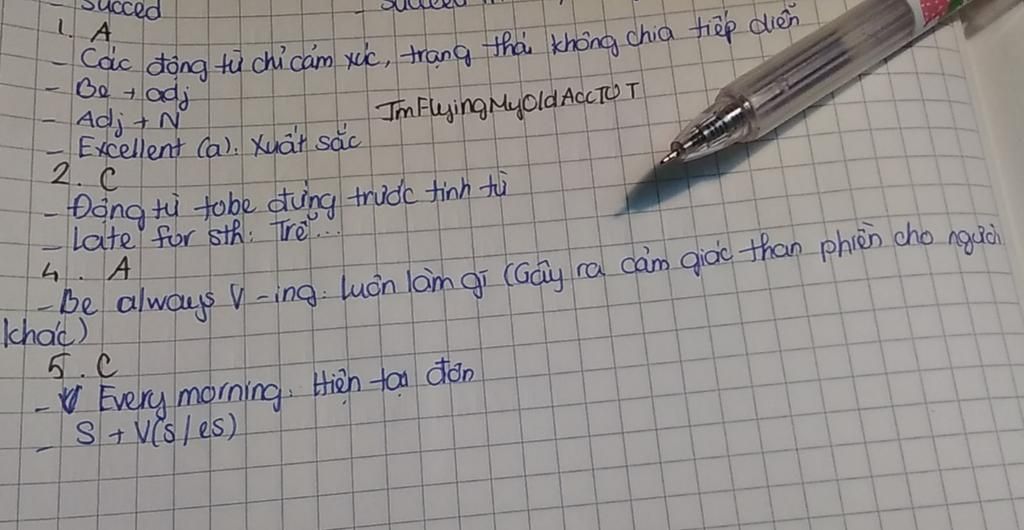 - Succed
1. A
- Các động từ chỉ cảm xúc, trạng thái không chia tiếp diễn
- Be + adj
- Adj + N
ImFlyingMyOldAccTOT
- Excellent (a). Xuất sắc
2. C
- Động từ tobe đứng trước tính từ
- Late for sth: Trễ...
4. A
- Be always V-ing: luôn làm gì (Gây ra cảm giác than phiền cho người
khác)
5. C
- Every morning. Hiện tại đơn
- S + V(s/es)